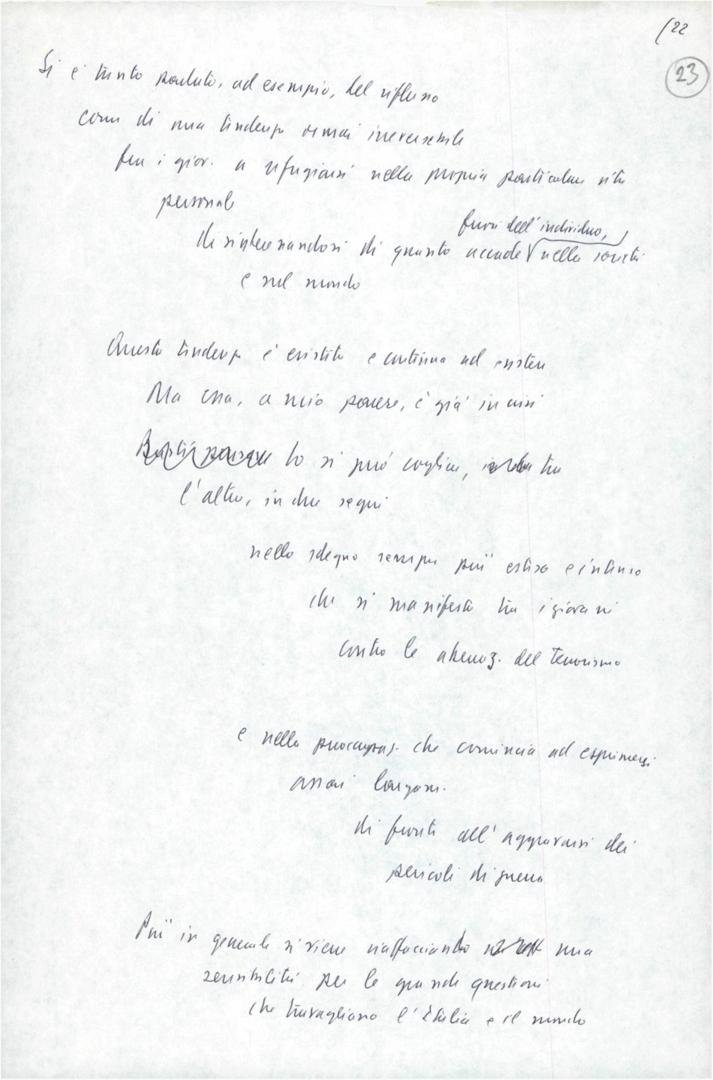 (22
23
Si è tanto parlato, ad esempio, del riflusso
come di una tendenza ormai irreversibile
fra i giov. a rifugiarsi nella propria particolare vita
personale
fuori dell'individuo,
disinteressandosi di quanto accade nella società
e nel mondo
Questa tendenza è esistita e continua ad esistere
Ma essa, a mio parere, è già in crisi
lo si può cogliere, tra
l'altro, in due segni
nello sdegno sempre più esteso e intenso
che si manifesta tra i giovani
contro le aberraz. del terrorismo
e nella preoccupaz. che comincia ad esprimersi
assai largam.
di fronte all'aggravarsi dei
pericoli di guerra
Più in generale si viene riaffacciando una
sensibilità per le grandi questioni
che travagliano l'Italia e il mondo